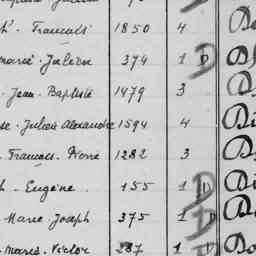 h. François 1850 4
marie. Julien 374 1 D
Jean. Baptiste 1479 3
se. Julien Alexandre 1594 4
François. Pierre 1282 3
h. Eugène 155 1 D
Marie. Joseph 375 1 D
marie. Victor 287 1 D